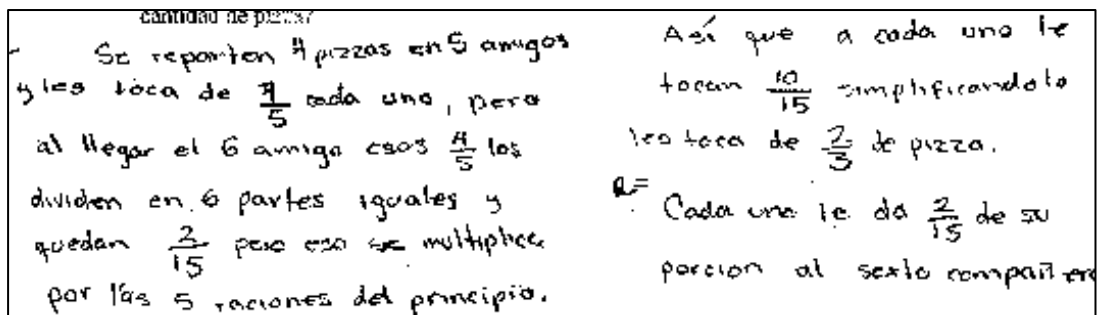 cantidad de pizza?
Se reparten 4 pizzas en 5 amigos
y les toca de 4/5 cada uno, pero
al llegar el 6 amigo esos 4/5 los
dividen en 6 partes iguales y
quedan 2/15 pero eso se multiplica
por las 5 raciones del principio.
Así que a cada uno le
tocan 10/15 simplificandolo
les toca de 2/3 de pizza.
R=
Cada uno le da 2/15 de su
porcion al sexto compañero